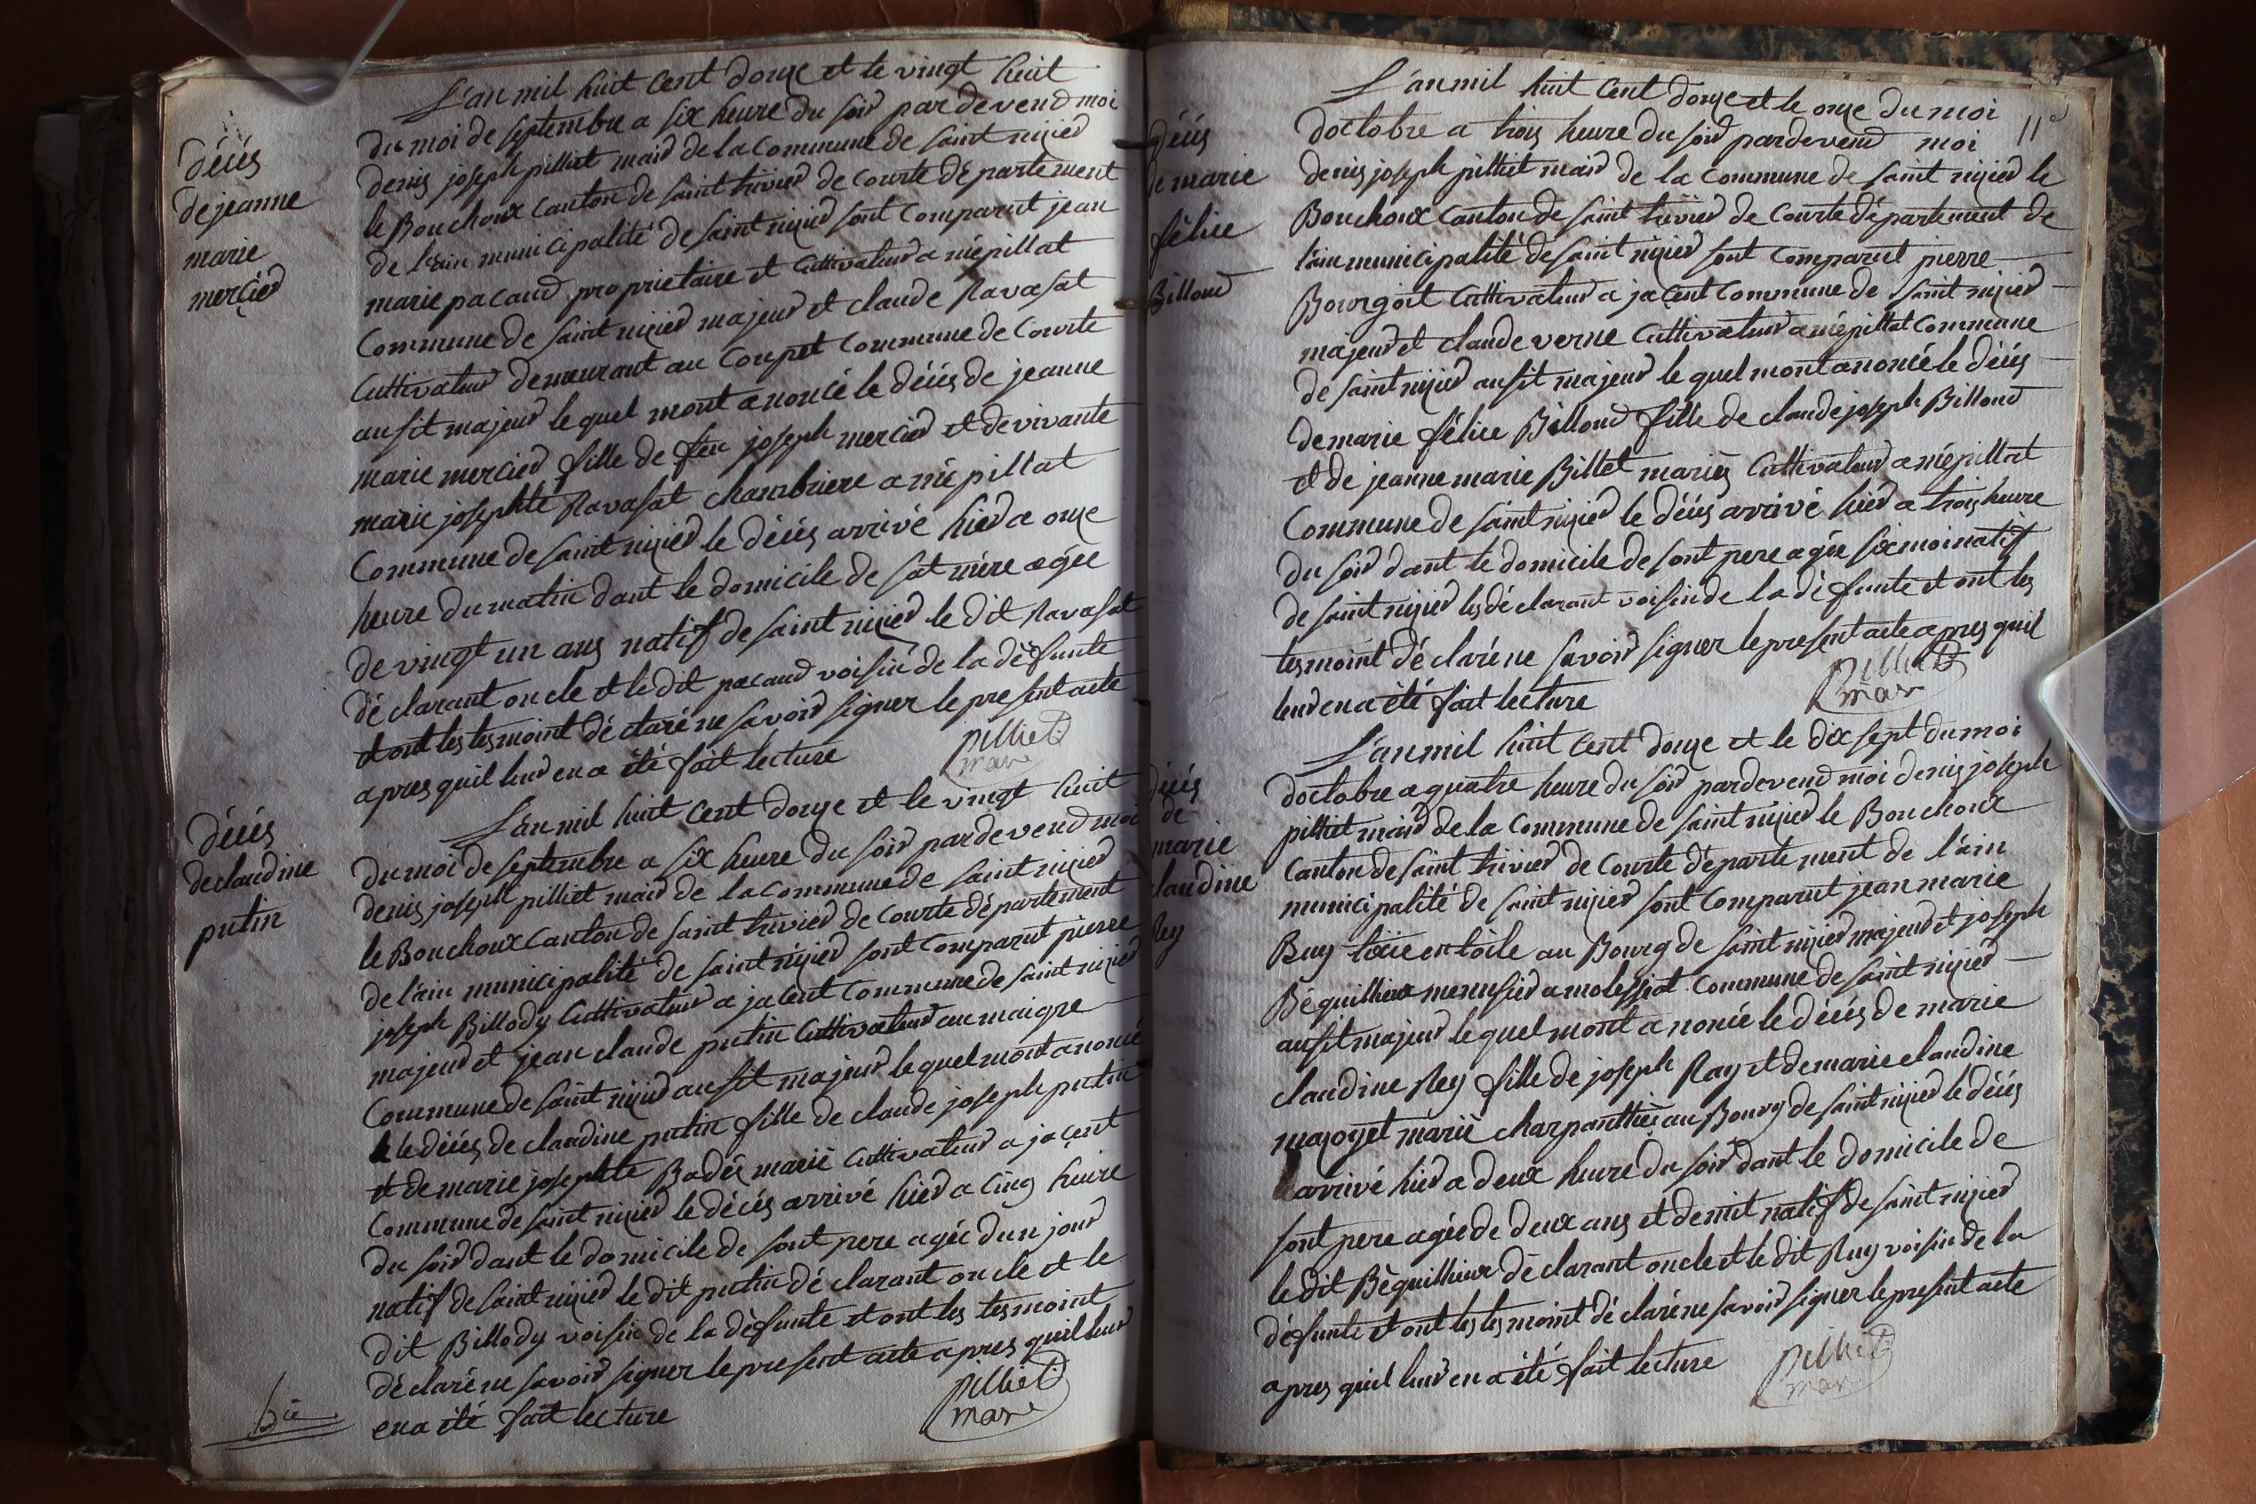 L'an mil huit Cent douze et le vingt huit
décés
de jeanne
marie
mercied
du moi de septembre a six heure du soir par devend moi
denis joseph pilliet maid de la Commune de saint nizied
le Bouchoux Canton de saint trivied de Courte département
de l'ain municipalité de saint nizied sont Comparut jean
marie pacaud proprietaire et Cultivateur a mépillat
Commune de saint nizied majeur et claude Ravasat
Cultivateur demeurant au Coupet Commune de Courte
ausit majeur le quel mont anoncé le décés de jeanne
marie mercied fille de feu joseph mercied et de vivante
marie josephte Ravasat chambriere a mépillat
Commune de saint nizied le décés arrivé hied a onze
heure du matin dant le domicile de sat mère agée
de vingt un ans natif de saint nizied le dit Ravasat
déclarant oncle et le dit pacaud voisin de la défunte
et ont les tesmoint déclaré ne savoir signer le present acte
apres quil leur en a été fait lecture
pilliet
mair
décés
de claudine
putin
L'an mil huit Cent douze et le vingt huit
du moi de septembre a six heure du soir par devend moi
denis joseph pilliet maid de la Commune de saint nizied
le Bouchoux Canton de saint trivied de Courte département
de l'ain municipalité de saint nizied sont Comparut pierre
joseph Billody Cultivateur a jacent Commune de saint nizied
majeur et jean claude putin Cultivateur au maigre
Commune de saint nizied ausit majeur le quel mont anoncé
le décés de claudine putin fille de claude joseph putin
et de marie josephte Badez marié Cultivateur a jacent
Commune de saint nizied le décés arrivé hied a cinq heure
du soir dant le domicile de sont pere agée d'un jour
natif de saint nizied le dit putin déclarant oncle et le
dit Billody voisin de la défunte et ont les tesmoint
déclaré ne savoir signer le present acte apres quil leur
en a été fait lecture
pilliet
mair
11e
décés
de marie
félice
Billoud
L'an mil huit Cent douze et le onze du moi
doctobre a trois heure du soir pardevend moi
denis joseph pilliet maid de la Commune de saint nizied le
Bouchoux Canton de saint trivied de Courte département de
l'ain municipalité de saint nizied sont Comparut pierre
Bourgoit Cultivateur a jacent Commune de saint nizied
majeur et claude verne Cultivateur a mépillat Commune
de saint nizied ausit majeur le quel mont anoncé le décés
de marie félice Billoud fille de claude joseph Billoud
et de jeanne marie Billet mariés Cultivateur a mépillat
Commune de saint nizied le décés arrivé hied a trois heure
du soir dant le domicile de sont pere agée six moi natif
de saint nizied les déclarant voisin de la défunte et ont les
tesmoint déclaré ne savoir signer le present acte apres quil
leur en a été fait lecture
pilliet
mair
décés
de
marie
claudine
Rey
L'an mil huit Cent douze et le dix sept du moi
doctobre a quatre heure du soir pardevend moi denis joseph
pilliet maid de la Commune de saint nizied le Bouchoux
Canton de saint trivied de Courte département de l'ain
municipalité de saint nizied sont Comparut jean marie
Buy en toile au Bourg de saint nizied majeur et joseph
Bequillieux menusied a Commune de saint nizied
ausit majeur le quel mont anoncé le décés de marie
claudine Rey fille de joseph Ray et de marie claudine
mazoyet marié charpanthier au Bourg de saint nizied le décés
arrivé hied a deux heure du soir dant le domicile de
sont pere agée de deux ans et demit natif de saint nizied
le dit Béquillieux déclarant oncle et le dit Ruy voisin de la
défunte et ont les tesmoint déclaré ne savoir signer le present acte
apres quil leur en a été fait lecture
pilliet
mair